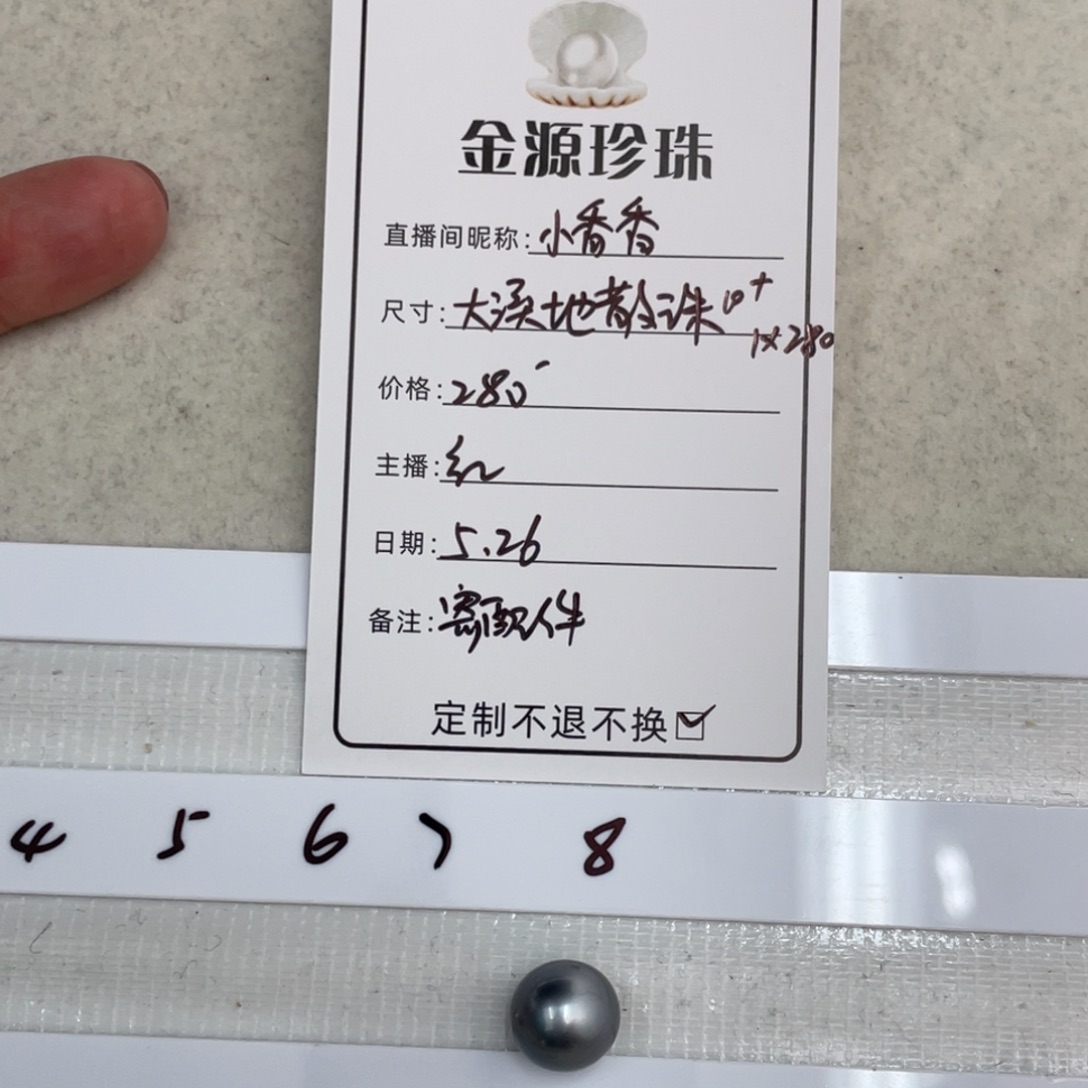 金源珍珠
直播间昵称:小香香
尺寸:大溪地散珠 10+
1x280
价格:280
主播:红
日期:5.26
备注:寄配件
定制不退不换☑
4 5 6 7 8